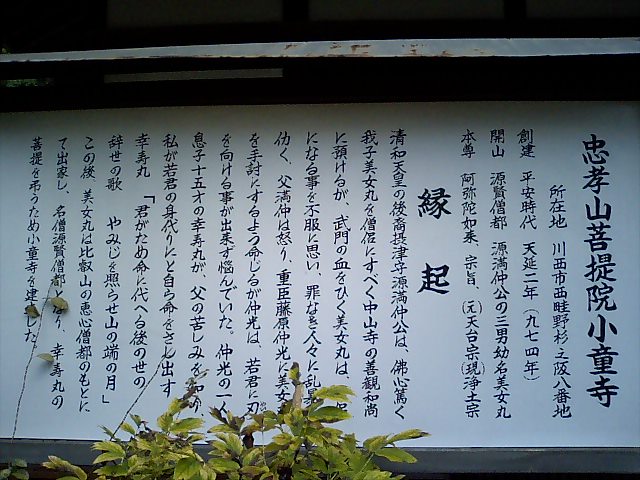 忠孝山菩提院小童寺
所在地 川西市西畦野杉之阪八番地
創建 平安時代 天延二年(九七四年)
開山 源賢僧都 源満仲公の三男幼名美女丸
本尊 阿弥陀如来、宗旨、(元)天台宗(現)浄土宗
縁起
清和天皇の後裔摂津守源満仲公は、佛心篤く
我子美女丸を僧侶にすべく中山寺の善観和尚
に預けるが、武門の血をひく美女丸は、
になる事を不服に思い、罪なき人々に乱暴
働く、父満仲は怒り、重臣藤原仲光に美女
を手討にするよう命じるが仲光は、若君に刃
を向ける事が出来ず悩んでいた、仲光の一
息子十五才の幸寿丸が、父の苦しみを
私が若君の身代りにと自ら命をさし出す
幸寿丸 「君がため命に代へる後の世の
辞世の歌 やみじを照らせ山の端の月」
この後、美女丸は比叡山の恵心僧都のもとに
て出家し、名僧源賢僧都 り、幸寿丸の
菩提を弔うため小童寺を建 した